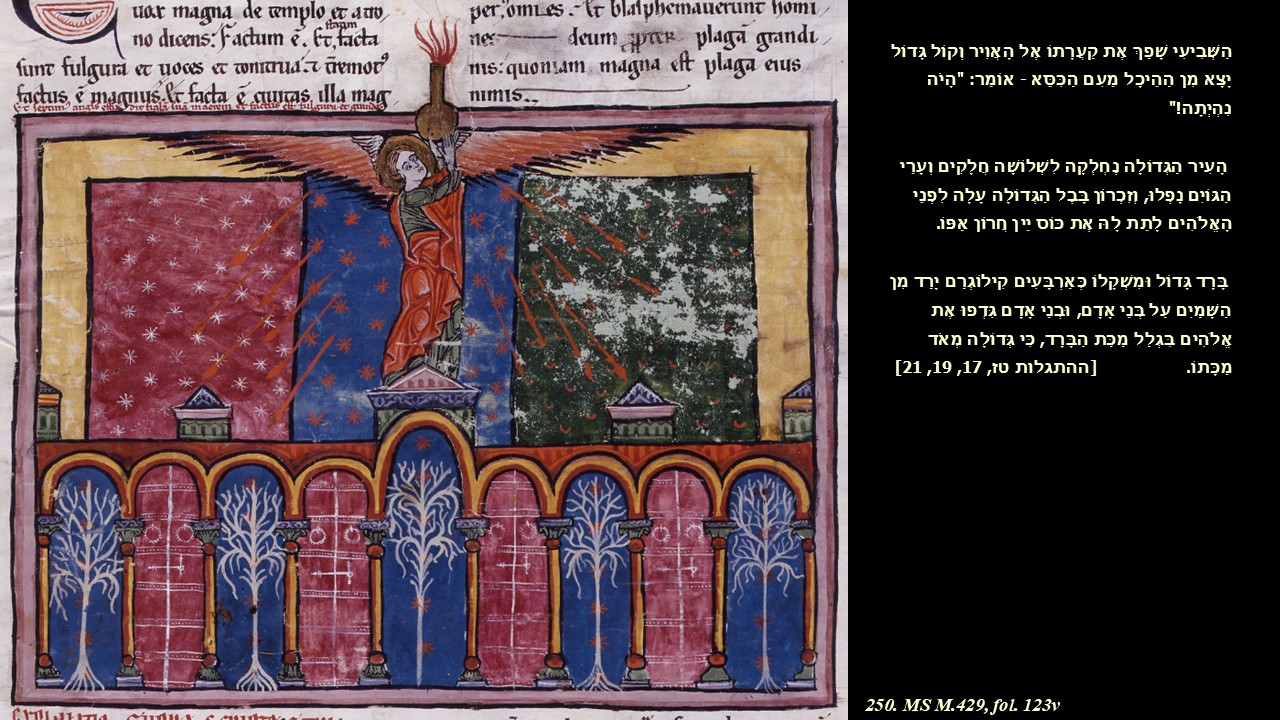 uox magna de templo et atro
no dicens: Factum ē. Et facta
sunt fulgura et uoces et tonitrua: τ t̄remotꝰ
factus ē magnus: & facta ē ciuitas illa mag
per omi es. Et blasphemauerunt homi
nes deum propter plaga grandi
nis: quoniam magna est plaga eius
nimis.
הַשְּׁבִיעִי שָׁפַךְ אֶת קַעֲרָתוֹ אֶל הָאֲוִיר וְקוֹל גָּדוֹל
יָצָא מִן הַהֵיכָל מֵעִם הַכִּסֵּא - אוֹמֵר: "הָיֹה
נִהְיְתָה!"
הָעִיר הַגְּדוֹלָה נֶחְלְקָה לִשְׁלוֹשָׁה חֲלָקִים וְעָרֵי
הַגּוֹיִם נָפְלוּ, וְזִכְרוֹן בָּבֶל הַגְּדוֹלָה עָלָה לִפְנֵי
הָאֱלֹהִים לָתֵת לָהּ אֶת כּוֹס יֵין חֲרוֹן אַפּוֹ.
בָּרָד גָּדוֹל וּמִשְׁקָלוֹ כְּאַרְבָּעִים קִילוֹגְרַם יָרַד מִן
הַשָּׁמַיִם עַל בְּנֵי אָדָם, וּבְנֵי אָדָם גִּדְּפוּ אֶת
אֱלֹהִים בִּגְלַל מַכַּת הַבָּרָד, כִּי גְּדוֹלָה מְאֹד
מַכָּתוֹ. [ההתגלות טז, 17, 19, 21]
250. MS M.429, fol. 123v